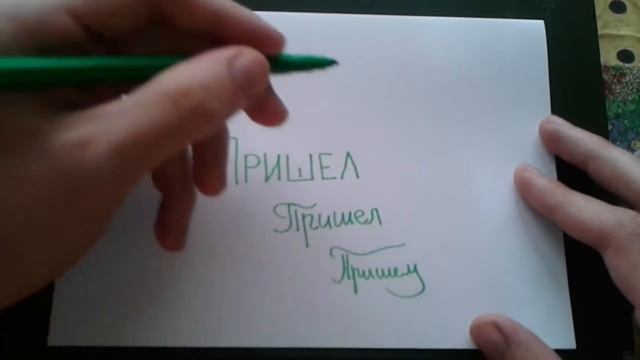 ПРИШЕЛ
Пришел
Пришел